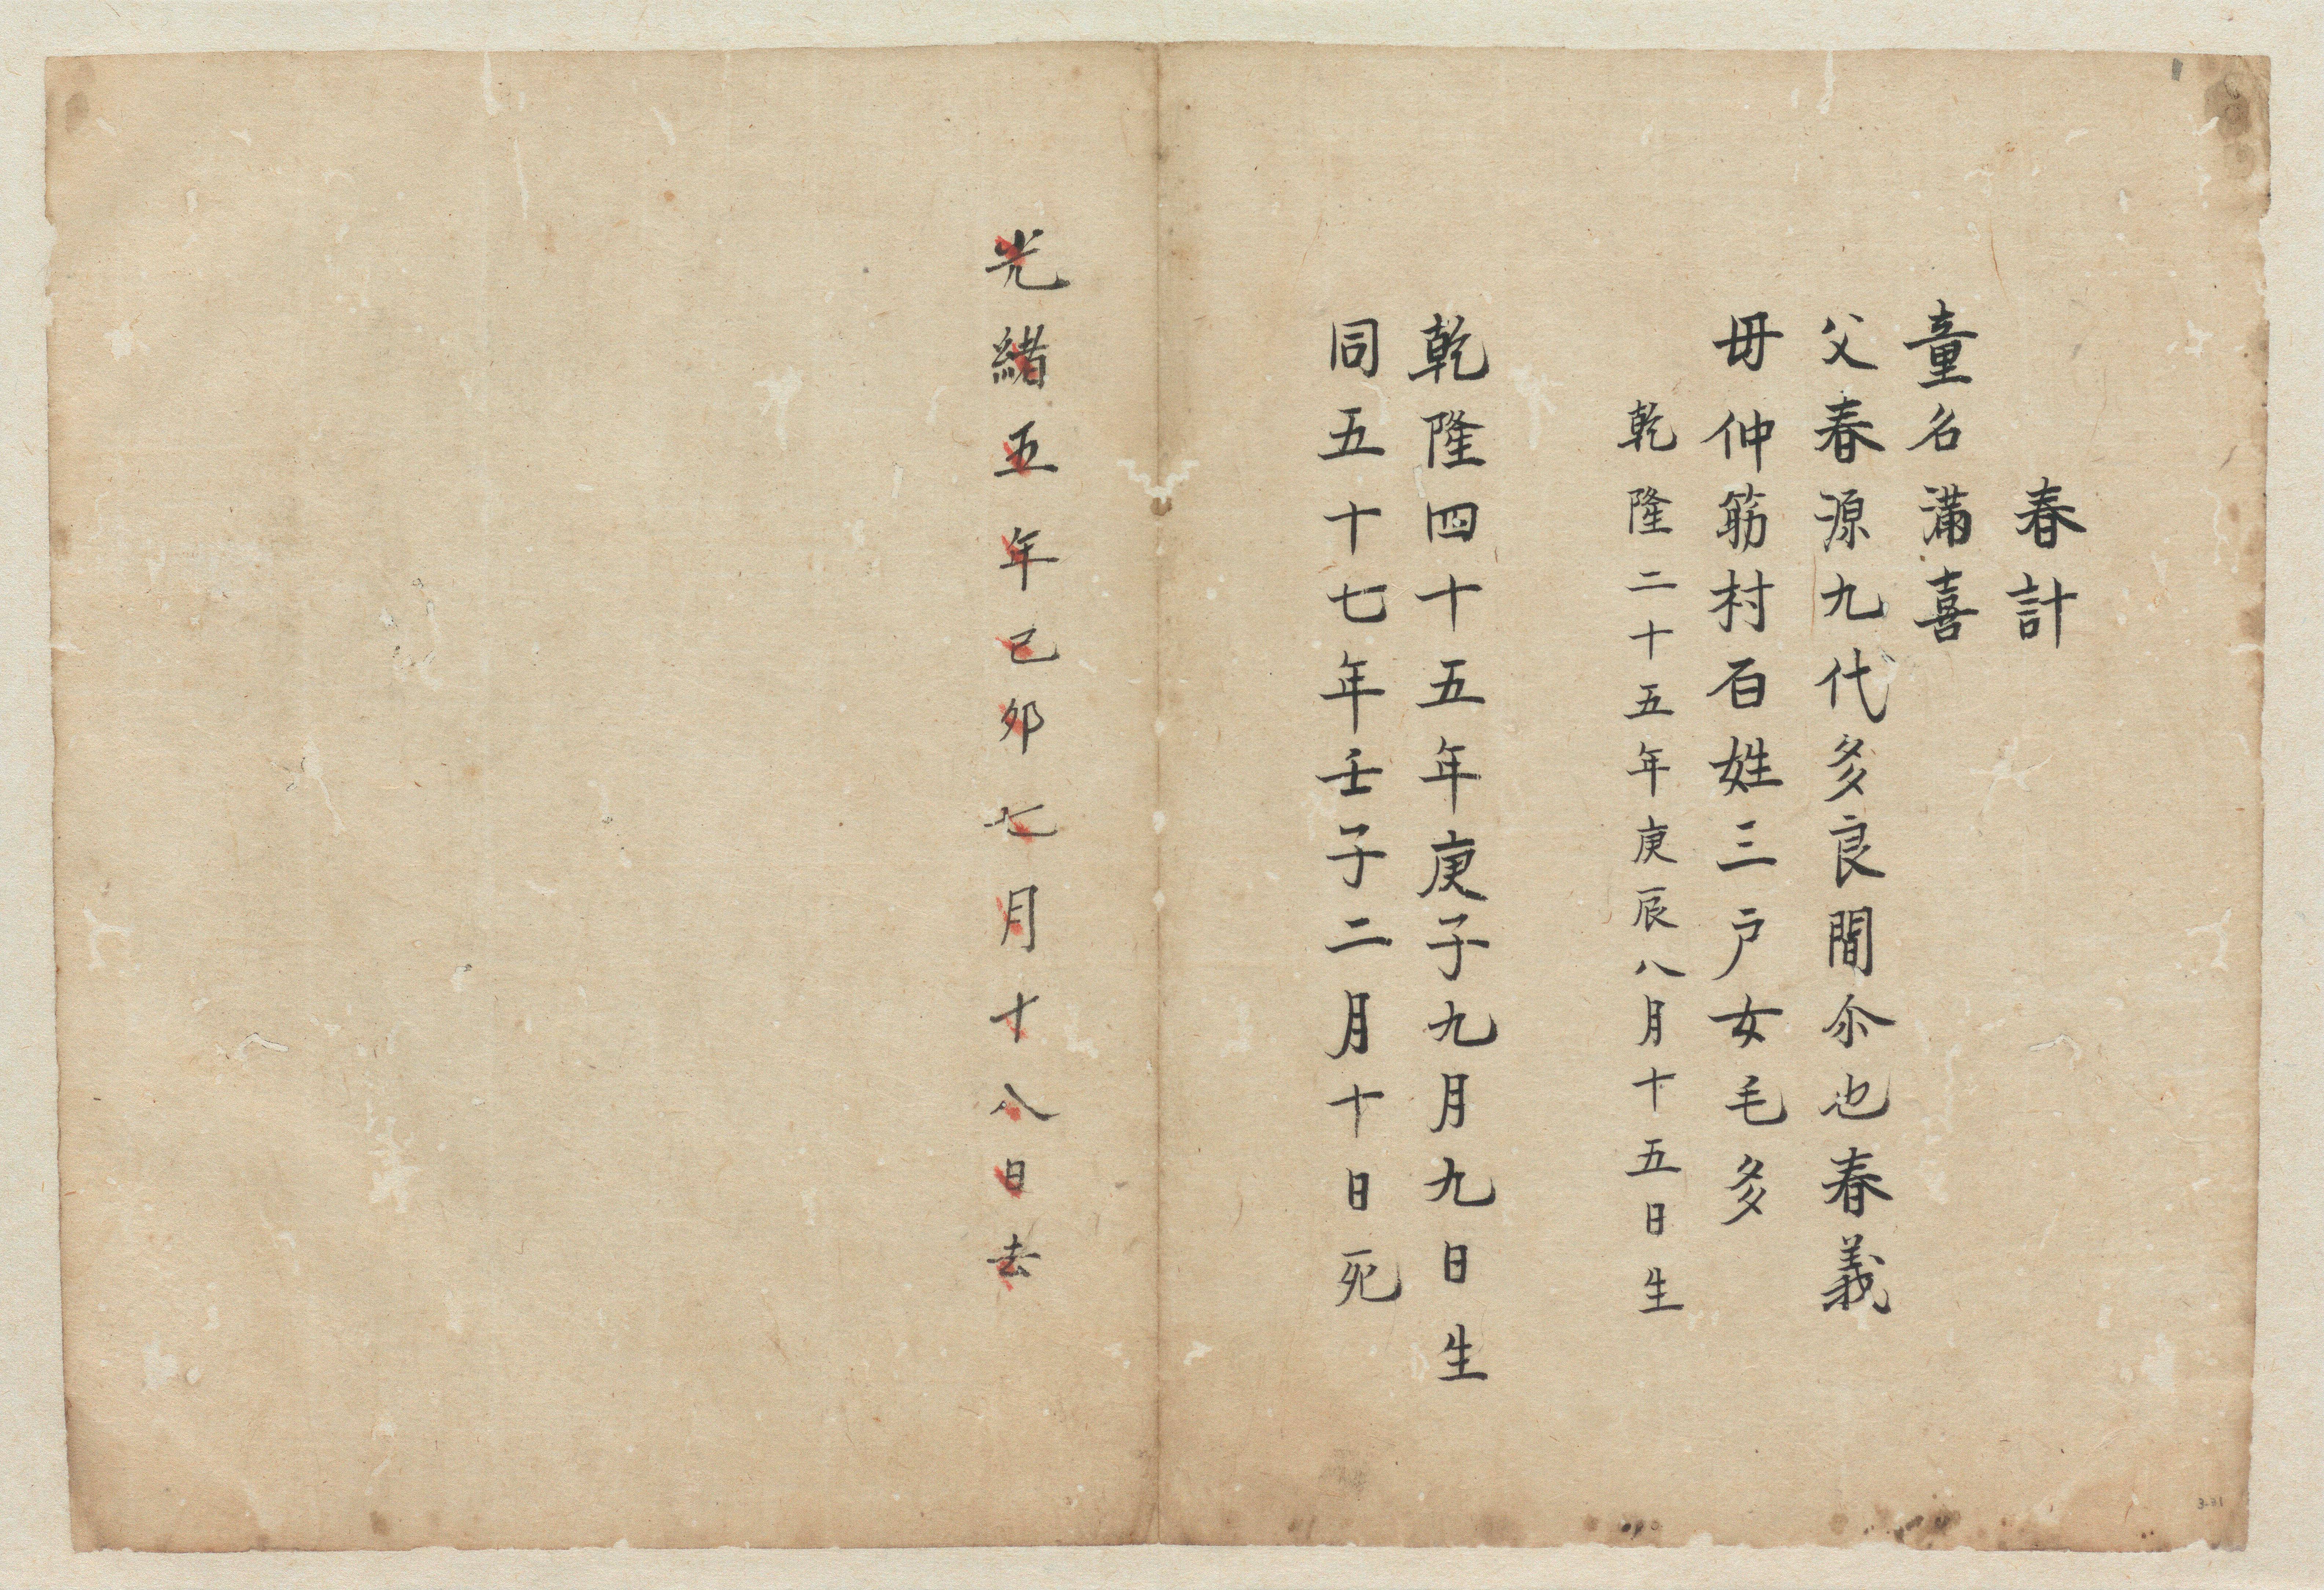 春計
童名満喜
父春源九代多良間尒也春義
母仲筋村百姓三户女毛多
乾隆二十五年庚辰八月十五日生
乾隆四十五年庚子九月九日生
同五十七年壬子二月十日死
光緒五年己夘七月十八日去